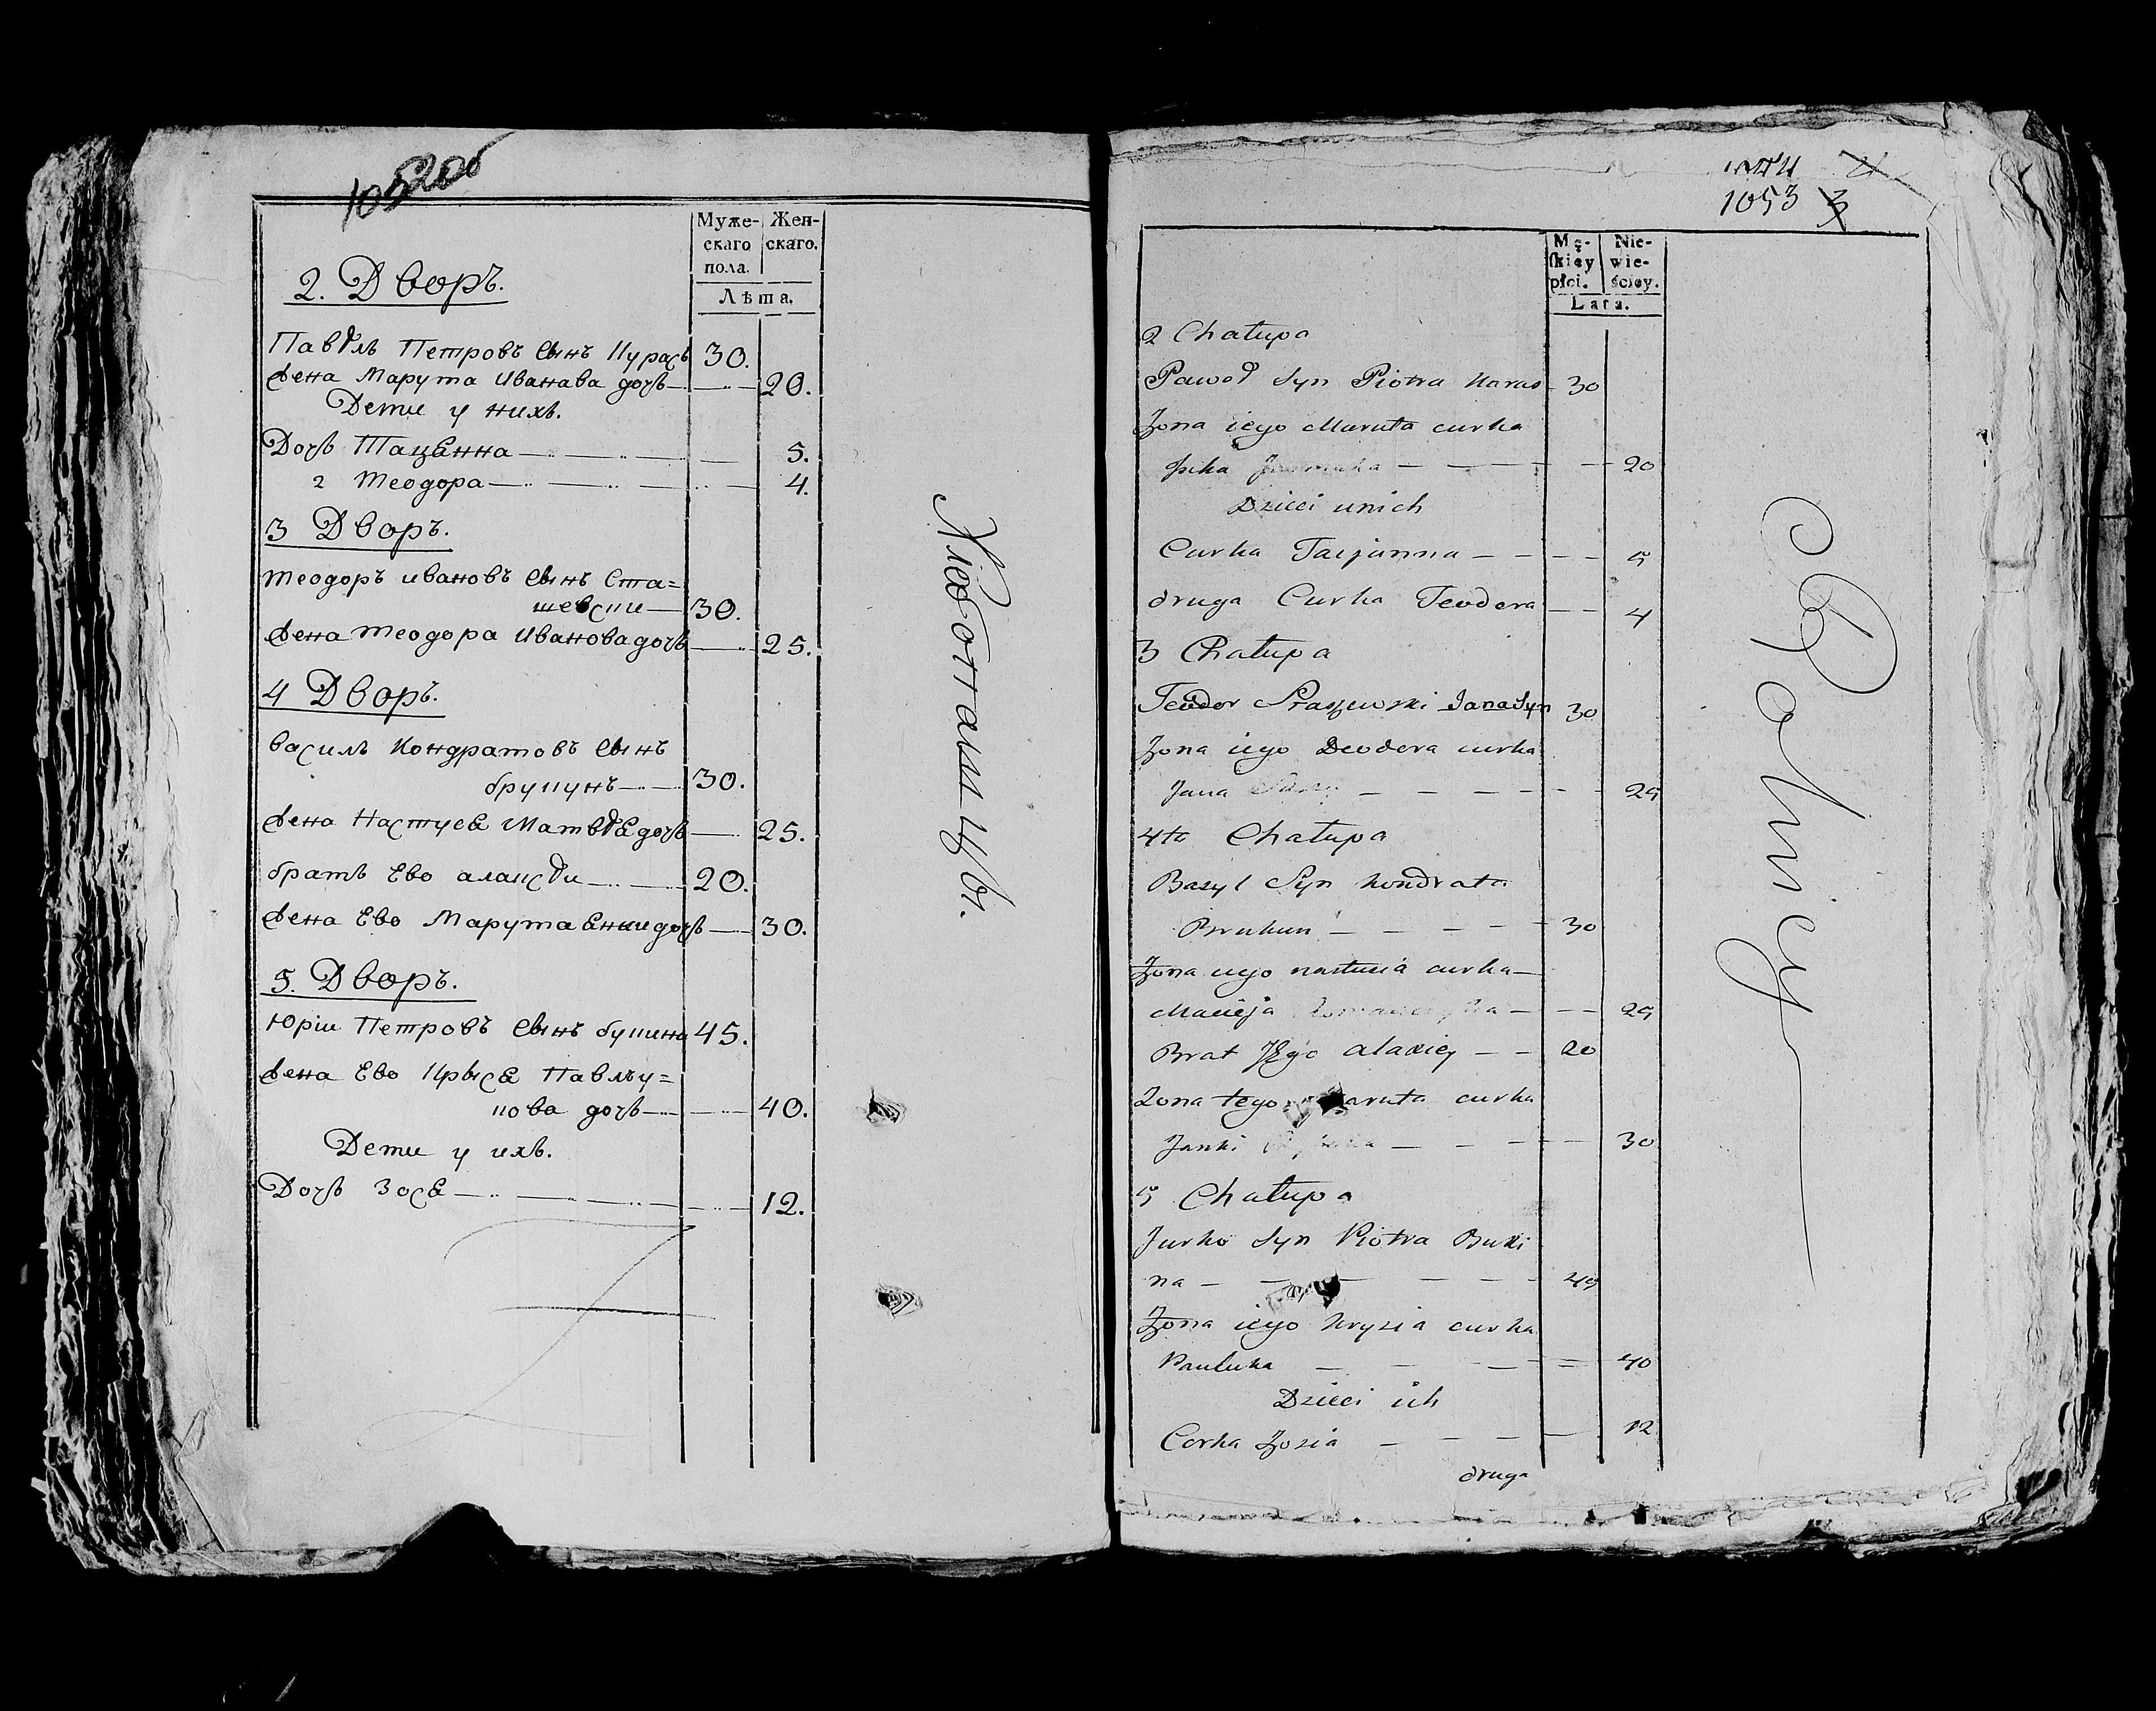 Муже-
скаго
пола.
Жен-
скаго.
Лѣта.
2. Дворъ.
Павелъ Петровъ сынъ Курасъ 30.
жена Марута Иванава дочь 20.
Дети у нихъ.
Дочь Тацѣнна 5.
2 Теодора 4.
3 Дворъ.
Теодоръ Ивановъ сынъ Ста=
шевски 30.
жена Теодора Иванова дочь 25.
4 Дворъ.
Василь Кондратовъ сынъ
брукунъ 30.
жена Настусѣ дочь 25.
братъ Ево алаксеи 20.
жена Ево Марута дочь 30.
5. Дворъ.
Юрiи Петровъ сынъ букина 45.
жена Ево Крысѣ Павлю=
кова дочь 40.
Дети у ихъ.
Дочь Зосѣ 12.
Хлеботашцы.
1053
Mę-
skiey
płci.
Nie-
wie-
ściey.
Lata.
2 Chałupa
Paweł Syn Piotra Karas 30
Żona iego Maruta curka
20
Dzieci unich
Curka Tacjanna 5
druga Curka Teodora 4
3 Chałupa
Teodor Staszewski Jana Syn 30
Żona iego Deodora curka
Jana 25
4ta Chałupa
Bazyl Syn Kondrata
Brukun 30
Żona iego nastusia curka
Macieja 25
Brat Jego alaxiey 20
Zona tego Maruta curka
Janki 30
5 Chałupa
Jurko Syn Piotra Buki
na 45
Żona iego Krysia curka
Pauluka 40
Dzieci ich
Corka Zosia 12
druga
Rolnicy